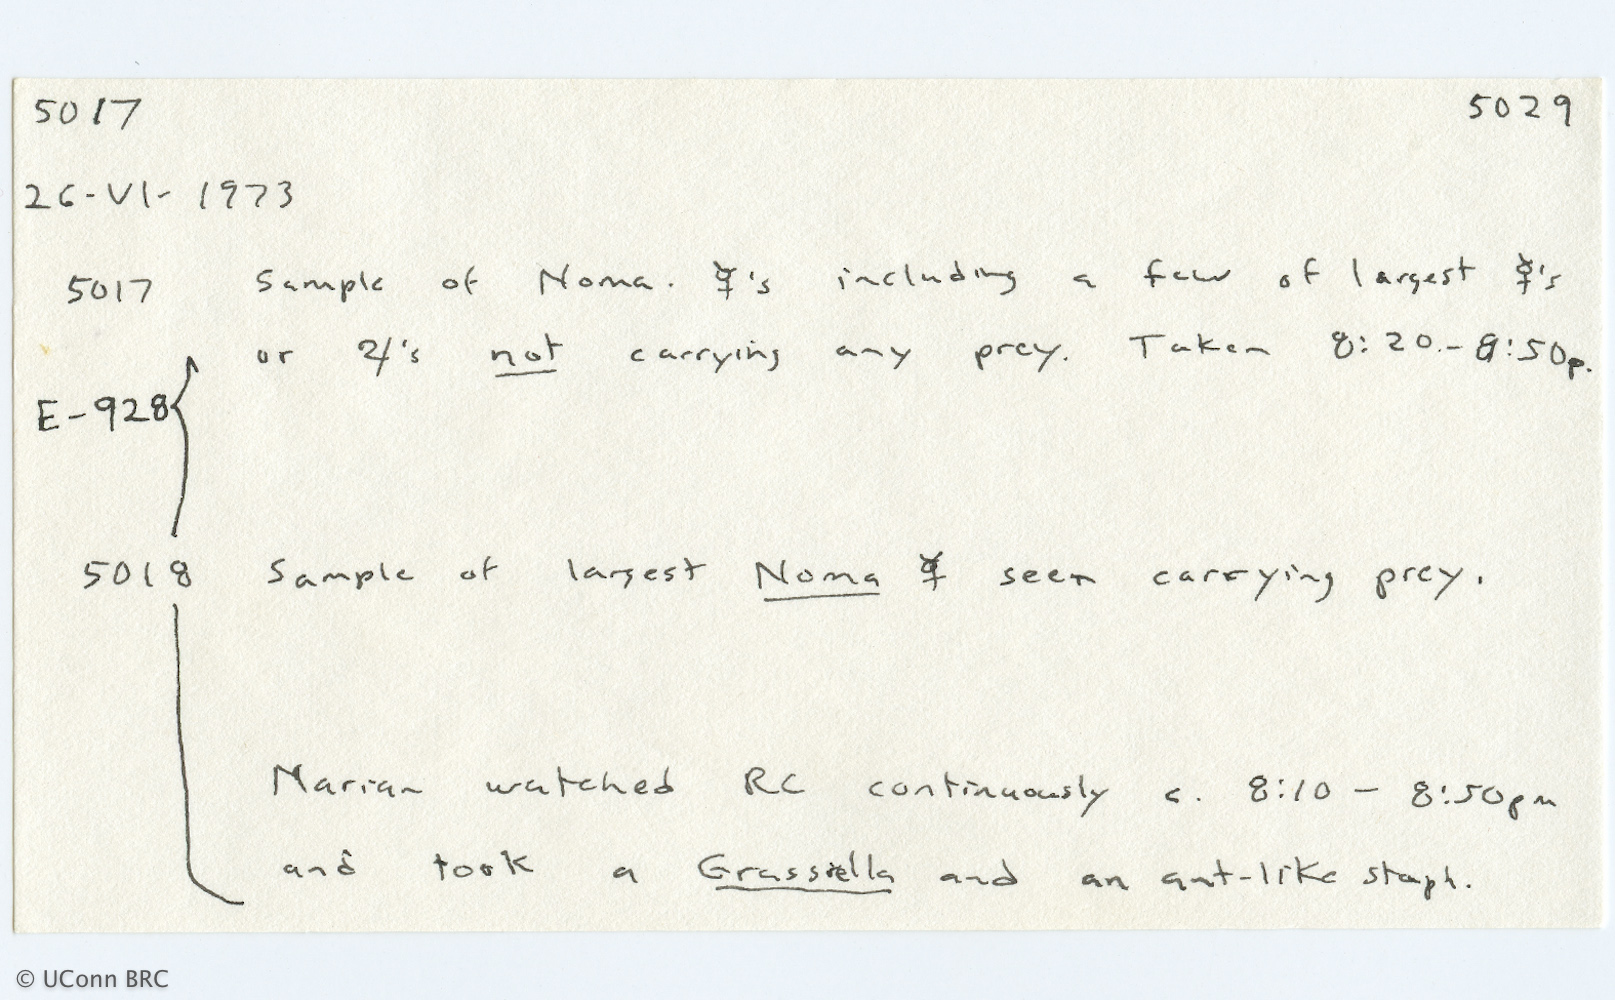 5017 5029
26-VI-1973
5017 Sample of Noma. ☿'s including a few of largest ☿'s
or ♃'s not carrying any prey. Taken 8:20.-8:50p.
E-928
5018 Sample of largest Noma ☿ seen carrying prey.
Marian watched RC continuously c. 8:10 - 8:50pm
and took a Grassiella and an ant-like staph.
© UConn BRC